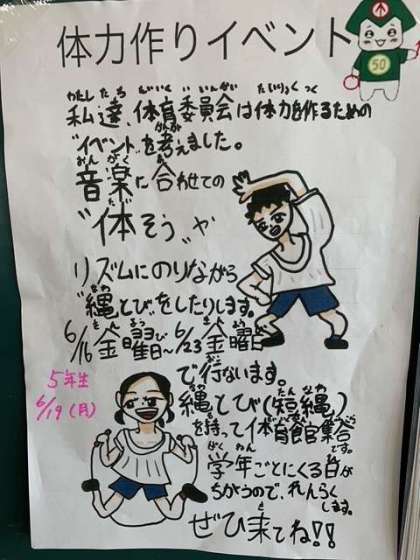 体力作りイベント
50
私達、体育委員会は体力を作るための
"イベント"を考えました。
音楽に合わせての
"体そう"や
リズムにのりながら
"縄とび"をしたりします。
6/16金曜日～6/23金曜日
で行ないます。
5年生
6/19(月)
縄とび(短縄)
を持って体育館集合
です。
学年ごとにくる日が
ちがうので、れんらく
します。
ぜひ来てね!!